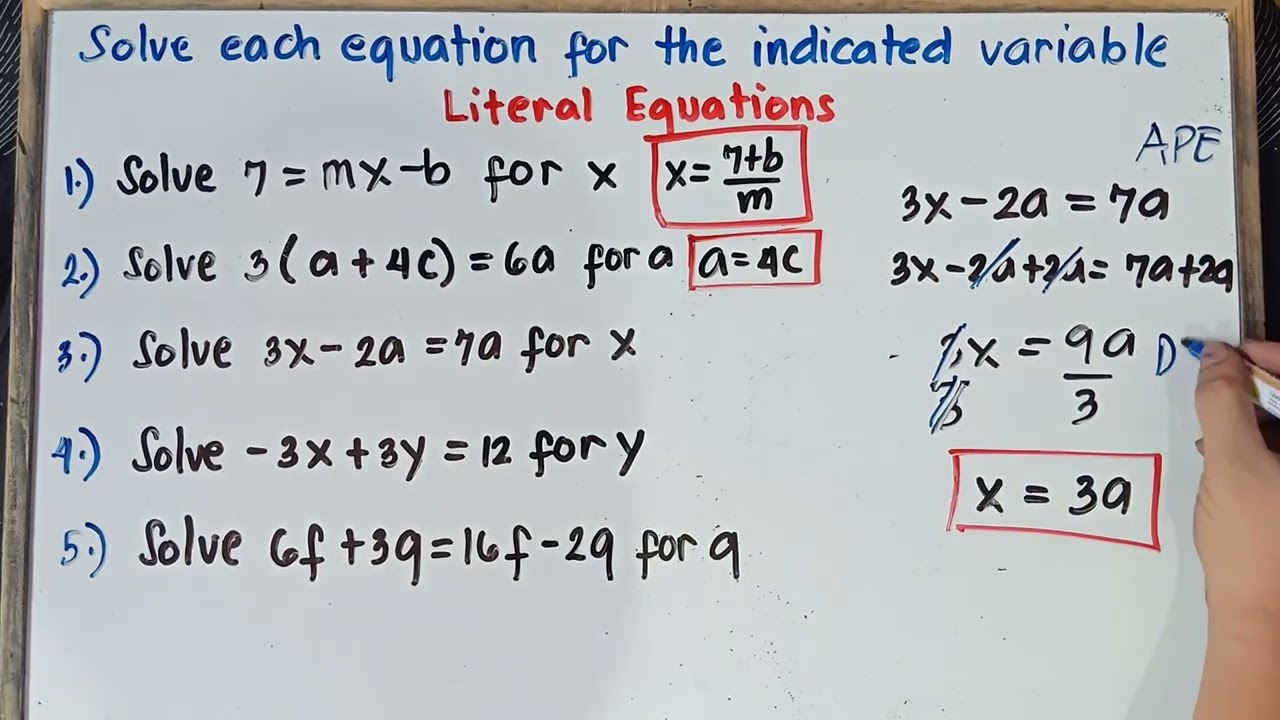 Solve each equation for the indicated variable
Literal Equations
1.) Solve 7 = mx-b for x x = 7+b/m
2.) Solve 3(a+4c) = 6a for a a = 4c
3.) Solve 3x-2a = 7a for x
4.) Solve -3x+3y = 12 for y
5.) Solve 6f+3g=16f-2g for g
APE
3x-2a = 7a
3x-2a+2a = 7a+2a
3x = 9a D
3 3
x = 3a